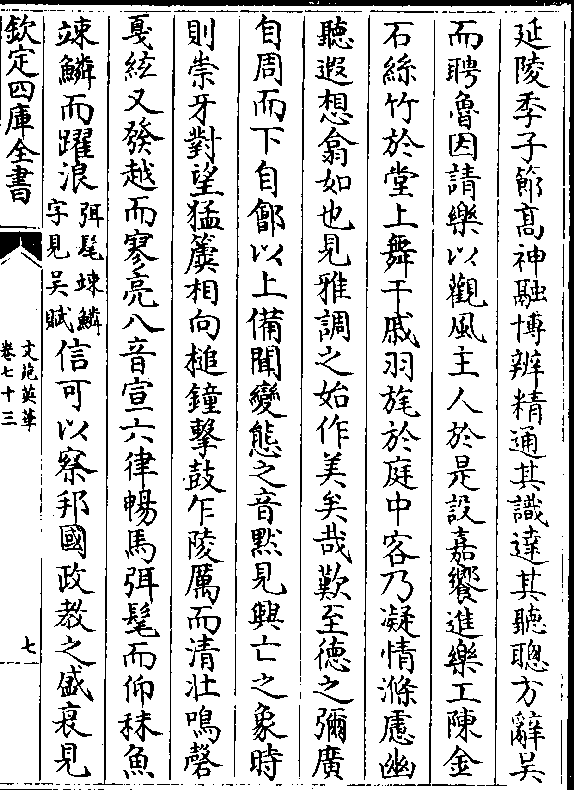 延陵季子節高神融博辨精通其識達其聽聰方辭吳
而聘魯因請樂以觀風主人於是設嘉饗進樂工陳金
石絲竹於堂上舞干戚羽旄於庭中客乃凝情滌慮幽
聽遐想翕如也見雅調之始作美矣哉歎至德之彌廣
自周而下自鄶以上備聞變態之音黙見興亡之象時
則崇牙對望猛簴相向槌鐘擊鼓乍陵厲而清壯鳴磬
戛絃又發越而寥亮八音宣六律暢馬弭髦而仰秣魚
竦鱗而躍浪弭髦竦鱗字見吳賦信可以察邦國政教之盛衰見
欽定四庫全書
文苑英華
卷七十三
七